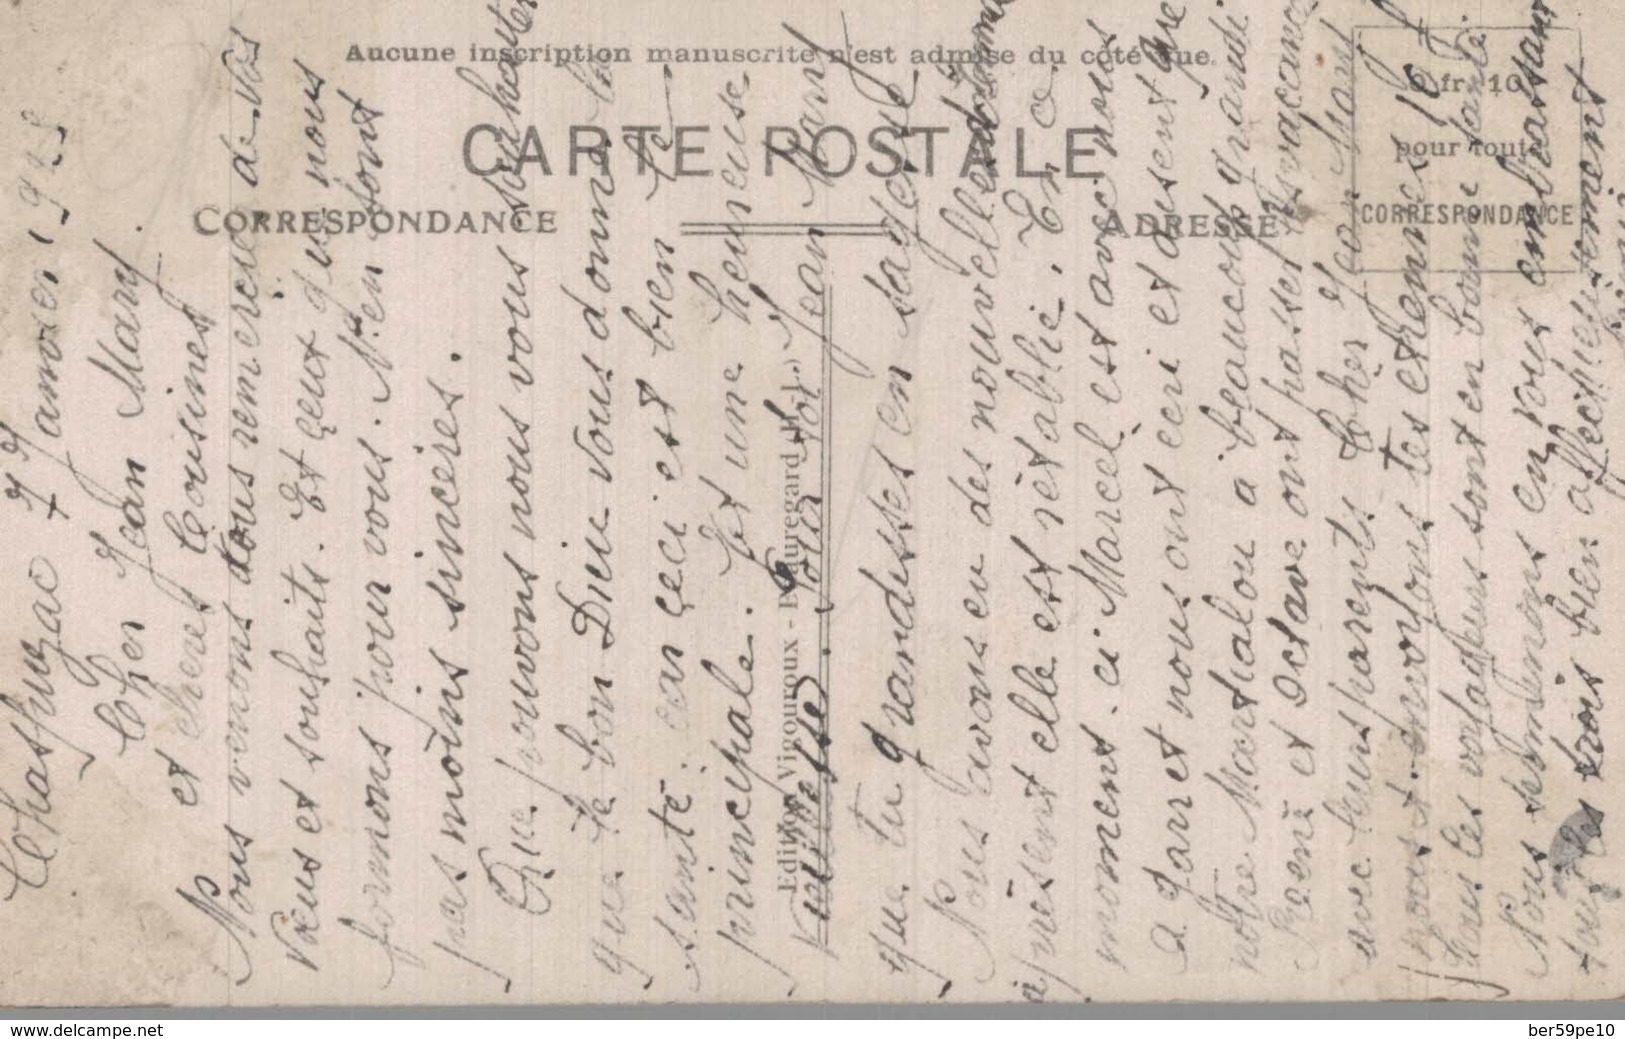 Aucune inscription manuscrite n'est admise du côté vue.
CARTE POSTALE
CORRESPONDANCE
ADRESSE
0 fr. 10
pour toute
CORRESPONDANCE
Edition Vigouroux - Beauregard
Chaspuzac 7 Janvier 1928
Cher Jean Mary.
et cheres Cousines
Nous venons vous remercier de vos
Vœux et souhaits. Et ceux que nous
formons pour vous. N'en sont
pas moins sincères.
Que pouvons nous vous souhaiter
que le bon Dieu vous donne la
santé: car ceci est bien le
principale. Et une heureuse
vieillesse. Pour toi Jean Mary
que tu grandisses en sagesse
Nous avons eu des nouvelles
aprèsent elle est rétablie. En ce
moment. ci Marcel est avec nous
a Jarret nous ont ecri et disent que
notre Martialou a beaucoup grandi
Reené et Octave ont passer les vacances
avec leurs parents Cher Jean Mary
nous t'envoyons tes etrennes 10 f
tous les voyageurs sont en bonne santé.
Nous terminons en vous embrassant
tous les trois bien affectueusement
www.delcampe.net
ber59pe10